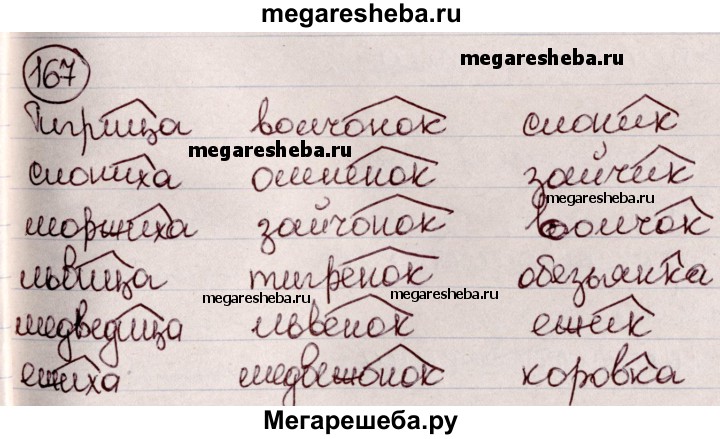 megaresheba.ru
megaresheba.ru
167
Тигрица волчонок слоник
megaresheba.ru
слониха оленёнок зайчик
megaresheba.ru
моржиха зайчонок волчок
львица тигрёнок обезьянка
megaresheba.ru megaresheba.ru
медведица львёнок ежик
ежиха медвежонок коровка
Мегарешеба.ру